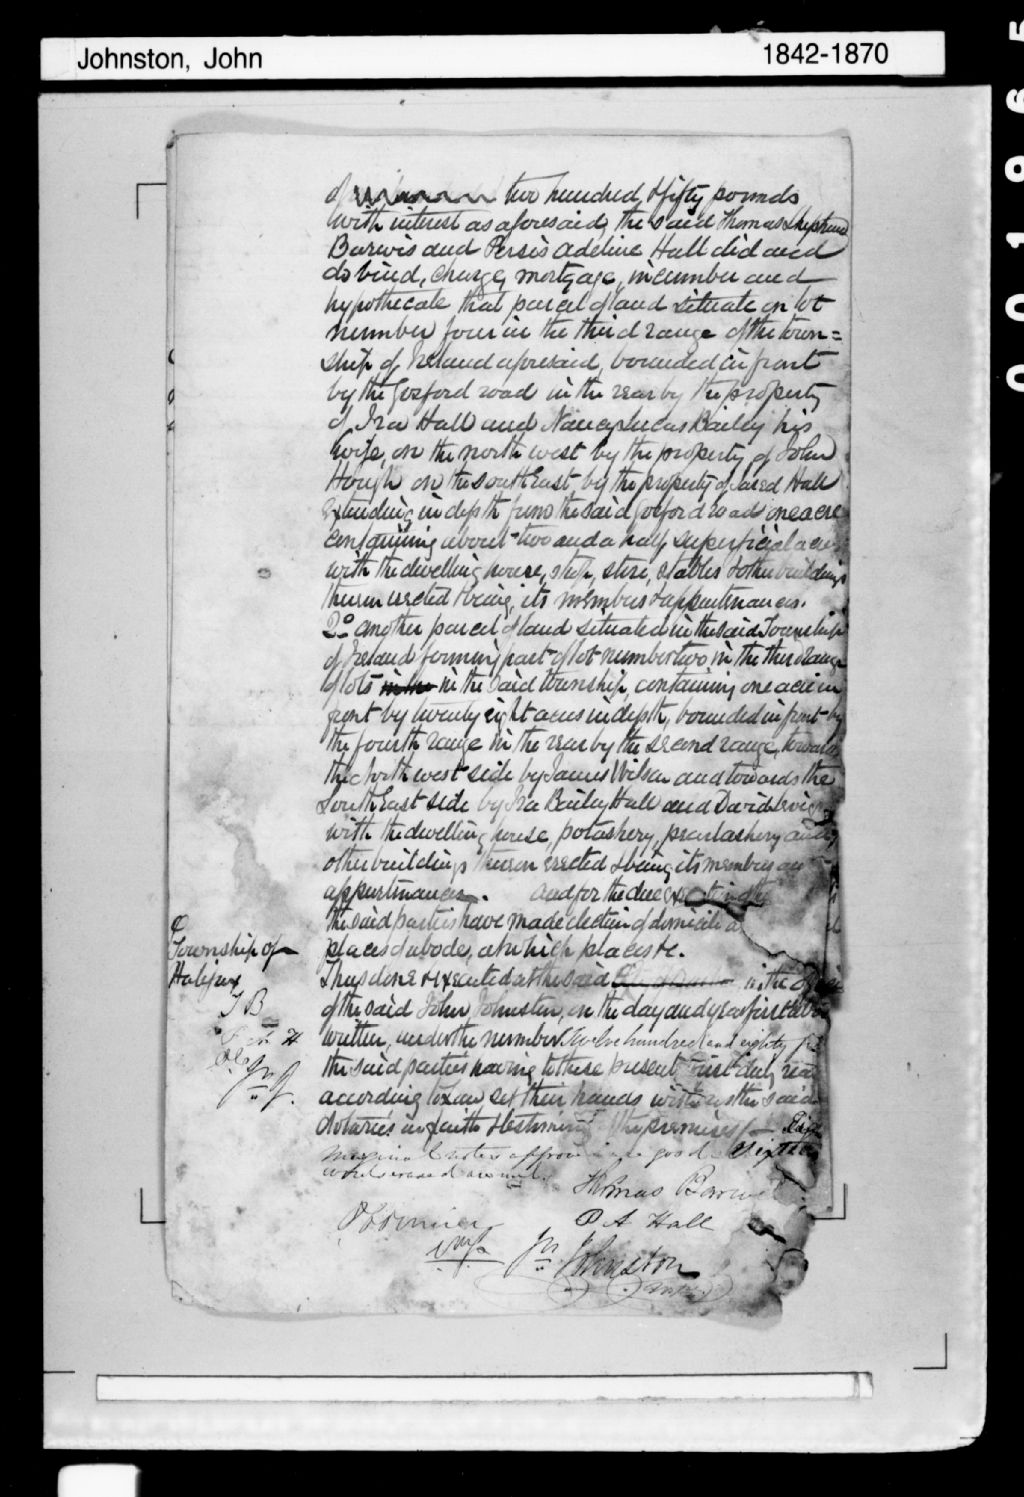 Johnston, John 1842-1870
0 0 1 9 6 5
of two hundred & fifty pounds
with interest as aforesaid, the said Thomas Shepherd
Barwis and Persis Adeline Hall did and
do bind, charge, mortgage, incumber and
hypothecate that parcel of land situate on lot
number four in the third range of the town=
ship of Ireland aforesaid, bounded in front
by the Gosford road in the rear by the property
of Ira Hall and Nancy Lucas Bailey his
wife, on the north west by the property of John
Hough on the south East by the property of Jared Hall
Extending in depth from the said Gosford road one acre
containing about two and a half superficial acres
with the dwelling house, shop, store, stables & other buildings
thereon erected & being, its members & appurtenances.
2º another parcel of land situated in the said Township
of Ireland forming part of lot number two in the third range
of lots in the in the said township, containing one acre in
front by twenty eight acres in depth, bounded in front by
the fourth range in the rear by the second range, towards
the North west side by James Wilson and towards the
South East side by Ira Bailey Hall and David
with the dwelling house, potashery, pearlashery and
other buildings thereon erected & being its members and
appurtenances. And for the due
the said parties have made election of domicile
places of abode, at which places &c.
Township of
Halifax
T B
P A H
Jn J.
Thus done & executed at the said in the office
of the said John Johnston, on the day and year first above
written, under the number Twelve hundred and eighty
the said parties having to these presents first duly read
according to Law set their hands with us the said
Notaries in faith & testimony of the premises /—
Marginal notes approved are good. Sixteen
words erased are null.
Thomas Barwis
P A Hall
Jn Johnston